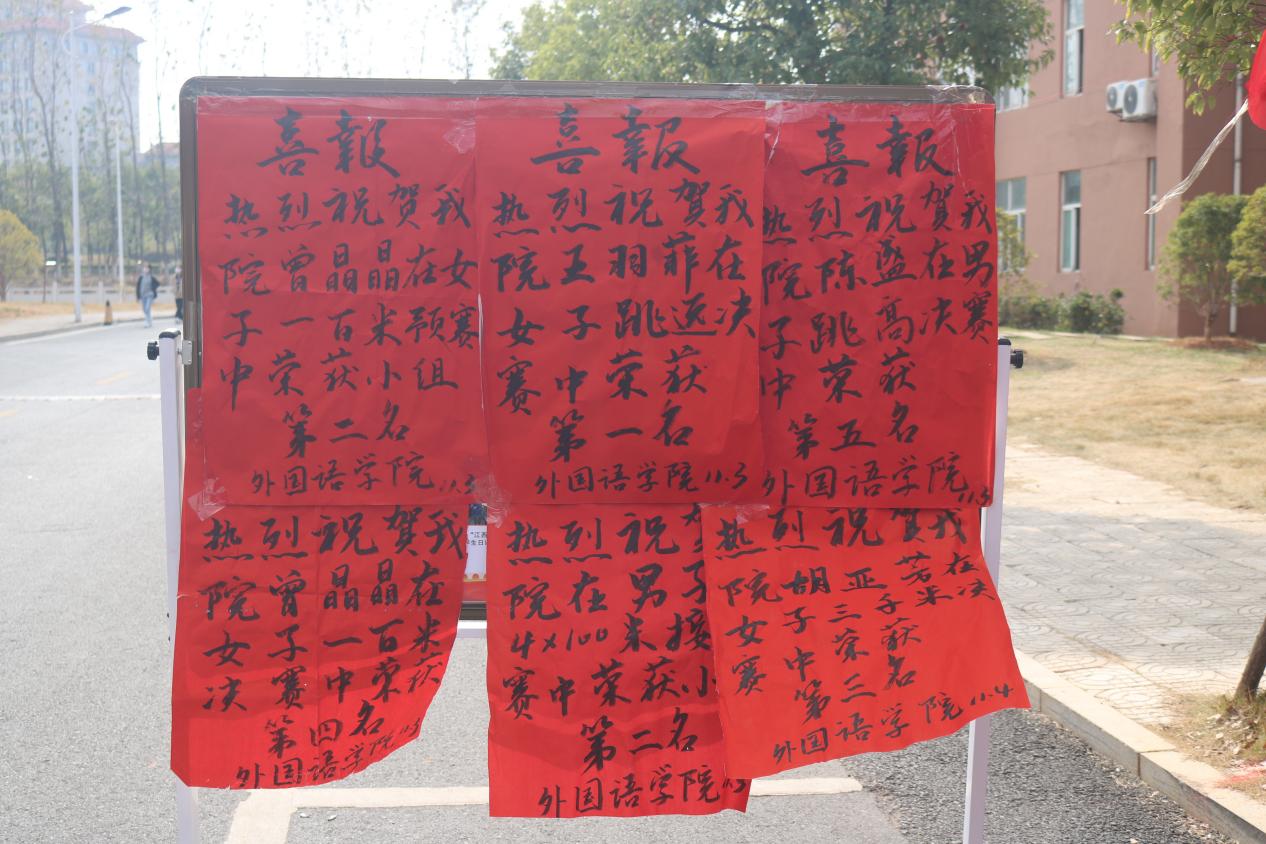 喜報
热烈祝贺我
院曾晶晶在女
子一百米预赛
中荣获小组
第二名
外国语学院 11.3
喜報
热烈祝贺我
院王羽菲在
女子跳远决
赛中荣获
第一名
外国语学院 11.3
喜報
热烈祝贺我
院陈盪在男
子跳高决赛
中荣获
第五名
外国语学院 11.3
热烈祝贺我
院曾晶晶在
女子一百米
决赛中荣获
第四名
外国语学院 11.3
热烈祝贺
院在男子
4×100米接
赛中荣获小
第二名
外国语学院
热烈祝贺我
院胡亚芳在
女子三千米决
赛中荣获
第三名
外国语学院 11.4
"江西
生日